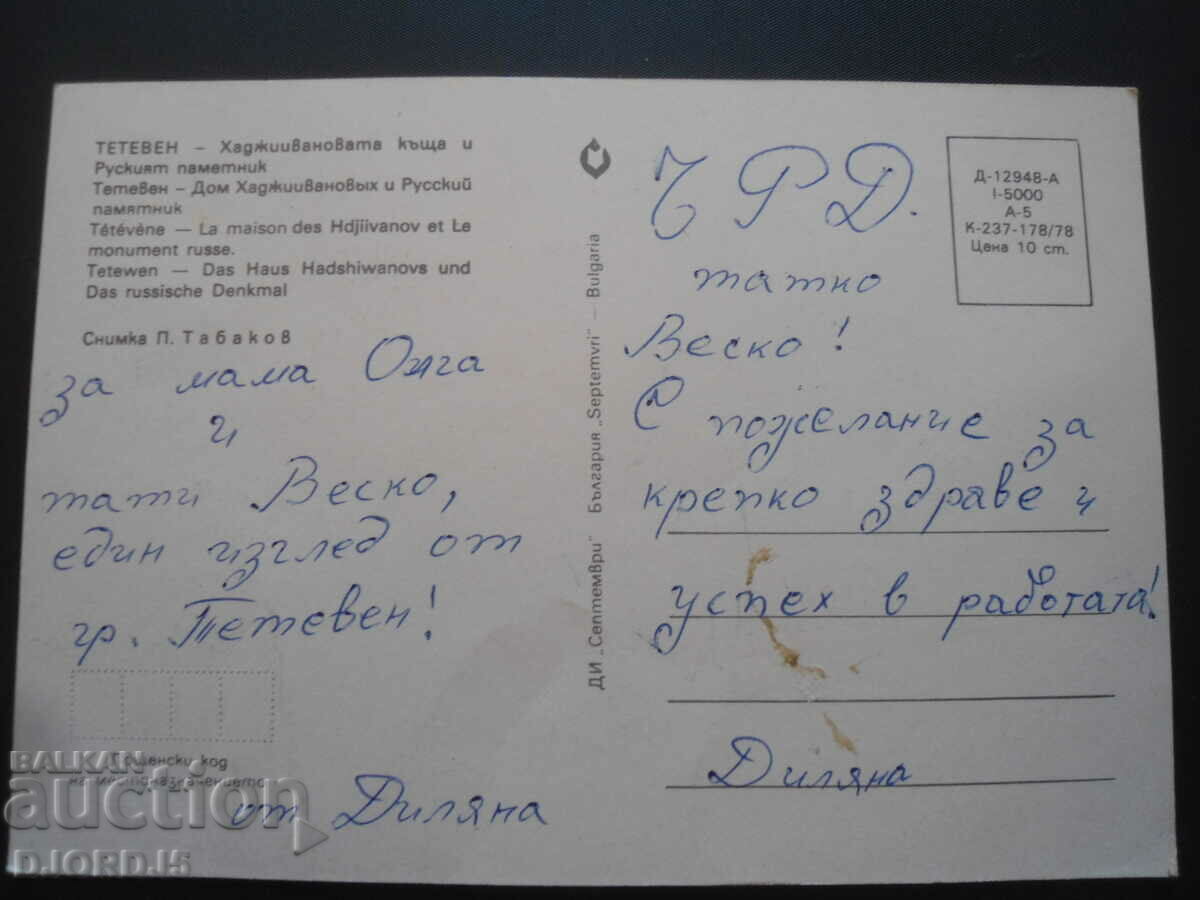 ТЕТЕВЕН – Хаджиивановата къща и
Руският паметник
Тетевен – Дом Хаджиивановых и Русский
памятник
Tétévène — La maison des Hdjiivanov et Le
monument russe.
Tetewen — Das Haus Hadshiwanovs und
Das russische Denkmal
Снимка П. Табаков
за мама Олга
и
тати Веско,
един изглед от
гр. Тетевен!
Пощенски код
на местоназначението
от Диляна
ДИ „Септември" България „Septemvri" — Bulgaria
Ч Р Д.
татко
Веско!
С пожелание за
крепко здраве и
успех в работата!
Диляна
Д-12948-А
I-5000
А-5
К-237-178/78
Цена 10 ст.
BALKAN
auction
DJORDJ5